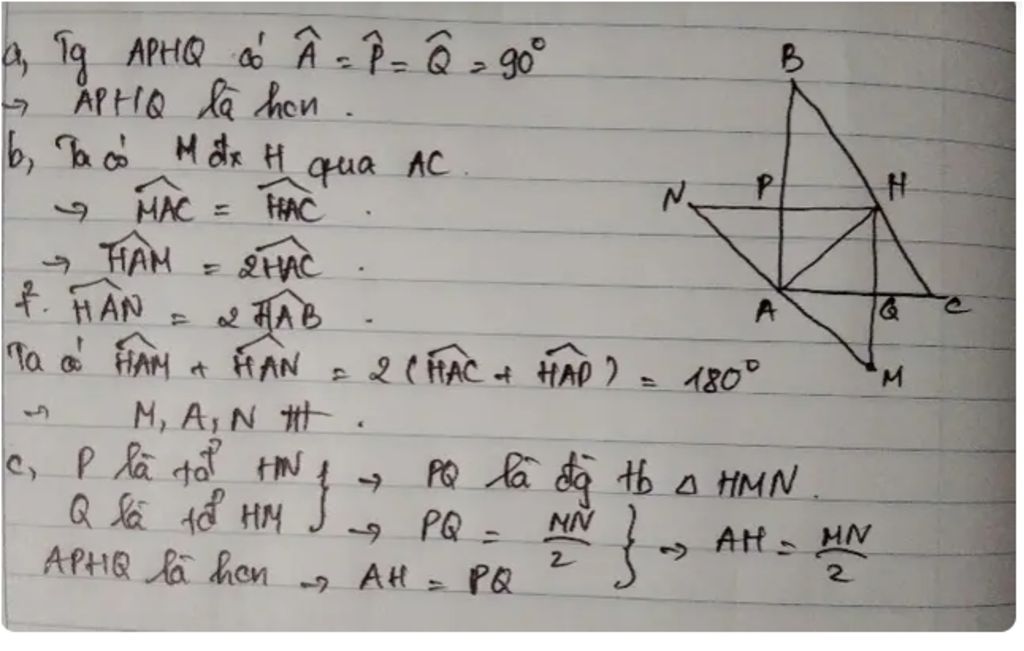 a, Tg APHQ có Â = P̂ = Q̂ = 90°
→ APHQ là hcn.
b, Ta có M đx H qua AC.
→ M̂AC = ĤAC.
→ ĤAM = 2ĤAC.
ĤAN = 2ĤAB.
Ta có ĤAM + ĤAN = 2(ĤAC + ĤAP) = 180°
→ M, A, N
c, P là tđ HN } → PQ là đg tb Δ HMN.
Q là tđ HM } → PQ = MN/2 } → AH = MN/2
APHQ là hcn → AH = PQ
B
N P H
A Q C
M